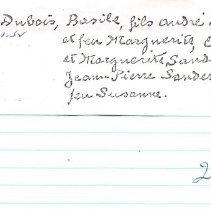 Dubois, Basile, fils André
et feu Marguerite,
et Marguerite, Sand
Jean-Pierre Sander
feu Susanne.
2